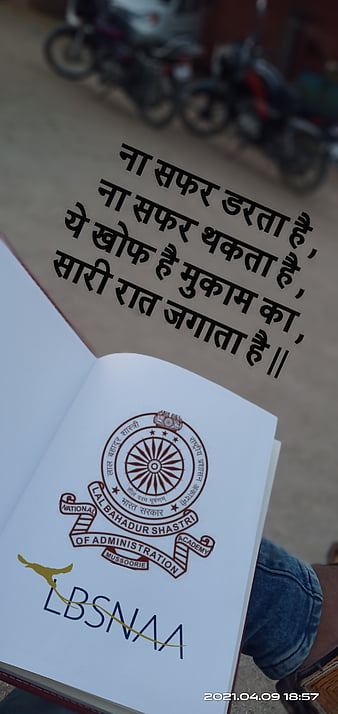 ना सफर डरता है,
ना सफर थकता है,
ये खोफ है मुकाम का,
सारी रात जगाता है॥
लाल बहादुर शास्त्री
राष्ट्रीय प्रशासन अकादमी
शीलं परम भूषणम्
भारत सरकार
LAL BAHADUR SHASTRI
NATIONAL
ACADEMY
OF ADMINISTRATION
MUSSOORIE
LBSNAA
2021.04.09 18:57